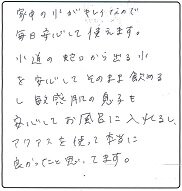 家中の水がキレイなので
毎日安心して使えます。
水道の蛇口から出る水
を安心してそのまま飲める
し敏感肌の息子も
安心してお風呂に入れるし、
アクアスを使って本当に
良かったこと思ってます。